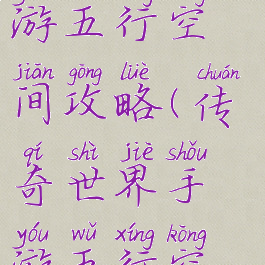 游五行空
jiān gōng lüè chuán
间攻略(传
qí shì jiè shǒu
奇世界手
yóu wǔ xíng kōng
游五行空